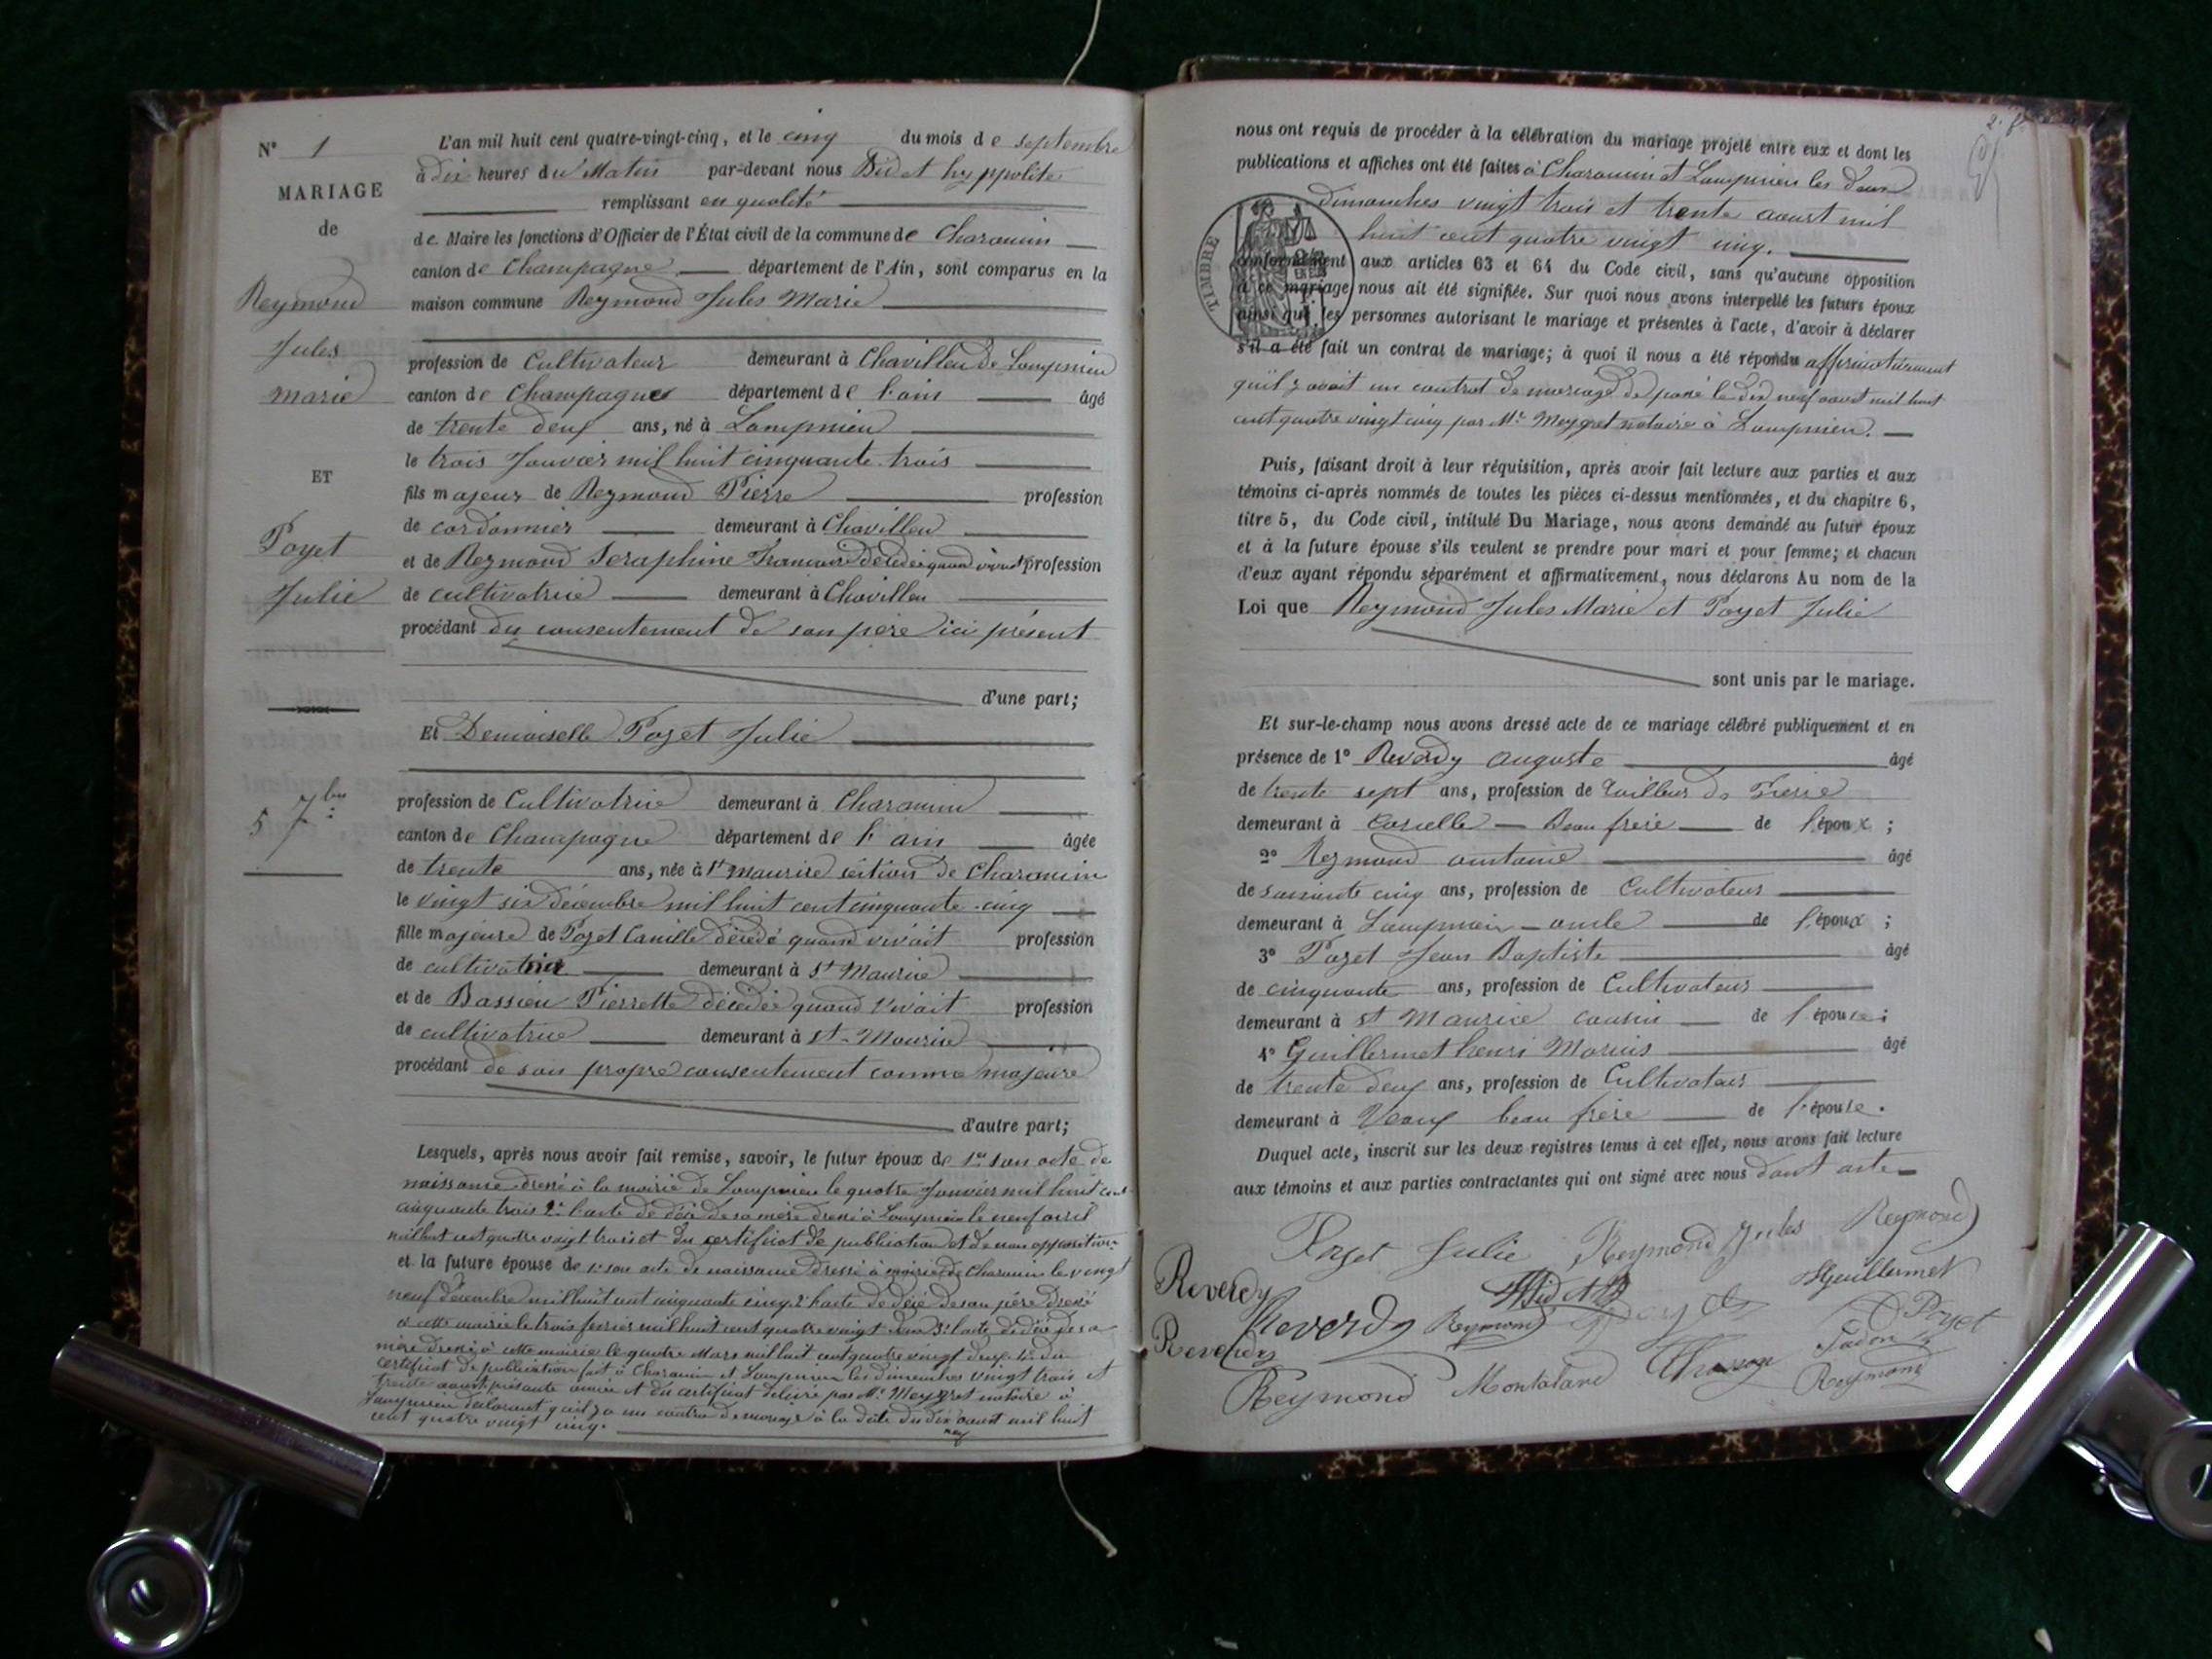 N° 1
MARIAGE
de
Reymond
Jules
marie
ET
Poyet
Julie
5 7bre
L'an mil huit cent quatre-vingt-cinq, et le cinq du mois de septembre
à dix heures du Matin par-devant nous Bidet hyppolite
remplissant en qualité
de Maire les fonctions d'Officier de l'État civil de la commune de Charancin
canton de Champagne département de l'Ain, sont comparus en la
maison commune Reymond Jules Marie
profession de Cultivateur demeurant à Chavilleu de Lompnieu
canton de Champagne département de l'ain âgé
de trente deux ans, né à Lompnieu
le trois Janvier mil huit cinquante trois
fils majeur de Reymond Pierre profession
de cordonnier demeurant à Chavilleu
et de Reymond Seraphine Françoise Décédée quand vivait profession
de cultivatrice demeurant à Chavilleu
procédant du consentement de son père ici présent
d'une part;
Et Demoiselle Poyet Julie
profession de Cultivatrice demeurant à Charancin
canton de Champagne département de l'ain âgée
de trente ans, née à St Maurice section de Charancin
le vingt six décembre mil huit cent cinquante-cinq
fille majeure de Poyet Camille décédé quand vivait profession
de cultivatrice demeurant à St Maurice
et de Bassieu Pierrette décédée quand vivait profession
de cultivatrice demeurant à St-Maurice
procédant de son propre consentement comme majeure
d'autre part;
Lesquels, après nous avoir fait remise, savoir, le futur époux de 1° son acte de
naissance dressé à la mairie de Lompnieu le quatre Janvier mil huit cent
cinquante trois 2° l'acte de décès de sa mère dressé à Lompnieu le neuf avril
mil huit cent quatre vingt trois et du certificat de publication et de non opposition
et la future épouse de 1° son acte de naissance dressé à mairie de Charancin le vingt
neuf décembre mil huit cent cinquante cinq 2° l'acte de décès de son père dressé
à cette mairie le trois février mil huit cent quatre vingt 3° l'acte de décès de sa
mère dressé à cette mairie le quatre Mars mil huit cent quatre vingt deux 4° du
certificat de publication fait à Charancin et Lompnieu les dimanches vingt trois et
trente aout présente année et du certificat délivré par Mr Meygret notaire à
Lompnieu déclarant qu'il y a un contrat de mariage à la date du dix neuf aout mil huit
cent quatre vingt cinq.
nous ont requis de procéder à la célébration du mariage projeté entre eux et dont les
publications et affiches ont été faites à Charancin et Lompnieu les deux
dimanches vingt trois et trente aoust mil
huit cent quatre vingt cinq.
TIMBRE
conformément aux articles 63 et 64 du Code civil, sans qu'aucune opposition
à ce mariage nous ait été signifiée. Sur quoi nous avons interpellé les futurs époux
ainsi que les personnes autorisant le mariage et présentes à l'acte, d'avoir à déclarer
s'il a été fait un contrat de mariage; à quoi il nous a été répondu affirmativement
qu'il y avait un contrat de mariage de passé le dix neuf aoust mil huit
cent quatre vingt cinq par Mr Meygret notaire à Lompnieu.
Puis, faisant droit à leur réquisition, après avoir fait lecture aux parties et aux
témoins ci-après nommés de toutes les pièces ci-dessus mentionnées, et du chapitre 6,
titre 5, du Code civil, intitulé Du Mariage, nous avons demandé au futur époux
et à la future épouse s'ils veulent se prendre pour mari et pour femme; et chacun
d'eux ayant répondu séparément et affirmativement, nous déclarons Au nom de la
Loi que Reymond Jules Marie et Poyet Julie
sont unis par le mariage.
Et sur-le-champ nous avons dressé acte de ce mariage célébré publiquement et en
présence de 1° Reverdy Auguste âgé
de trente sept ans, profession de Tailleur de Pierre
demeurant à Beau frère de l'époux;
2° Reymond antoine âgé
de soixante cinq ans, profession de Cultivateur
demeurant à Lompnieu oncle de l'époux;
3° Poyet Jean Baptiste âgé
de cinquante ans, profession de Cultivateur
demeurant à St Maurice cousin de l'épouse;
4° Guillermet henri Marius âgé
de trente deux ans, profession de Cultivateur
demeurant à Vaux beau frère de l'épouse.
Duquel acte, inscrit sur les deux registres tenus à cet effet, nous avons fait lecture
aux témoins et aux parties contractantes qui ont signé avec nous dont acte
Poyet Julie Reymond Jules Reymond
Reverdy Bidet H Guillermet
Reverdy Reymond Poyet
Reverdy
Reymond Montaland Reymond